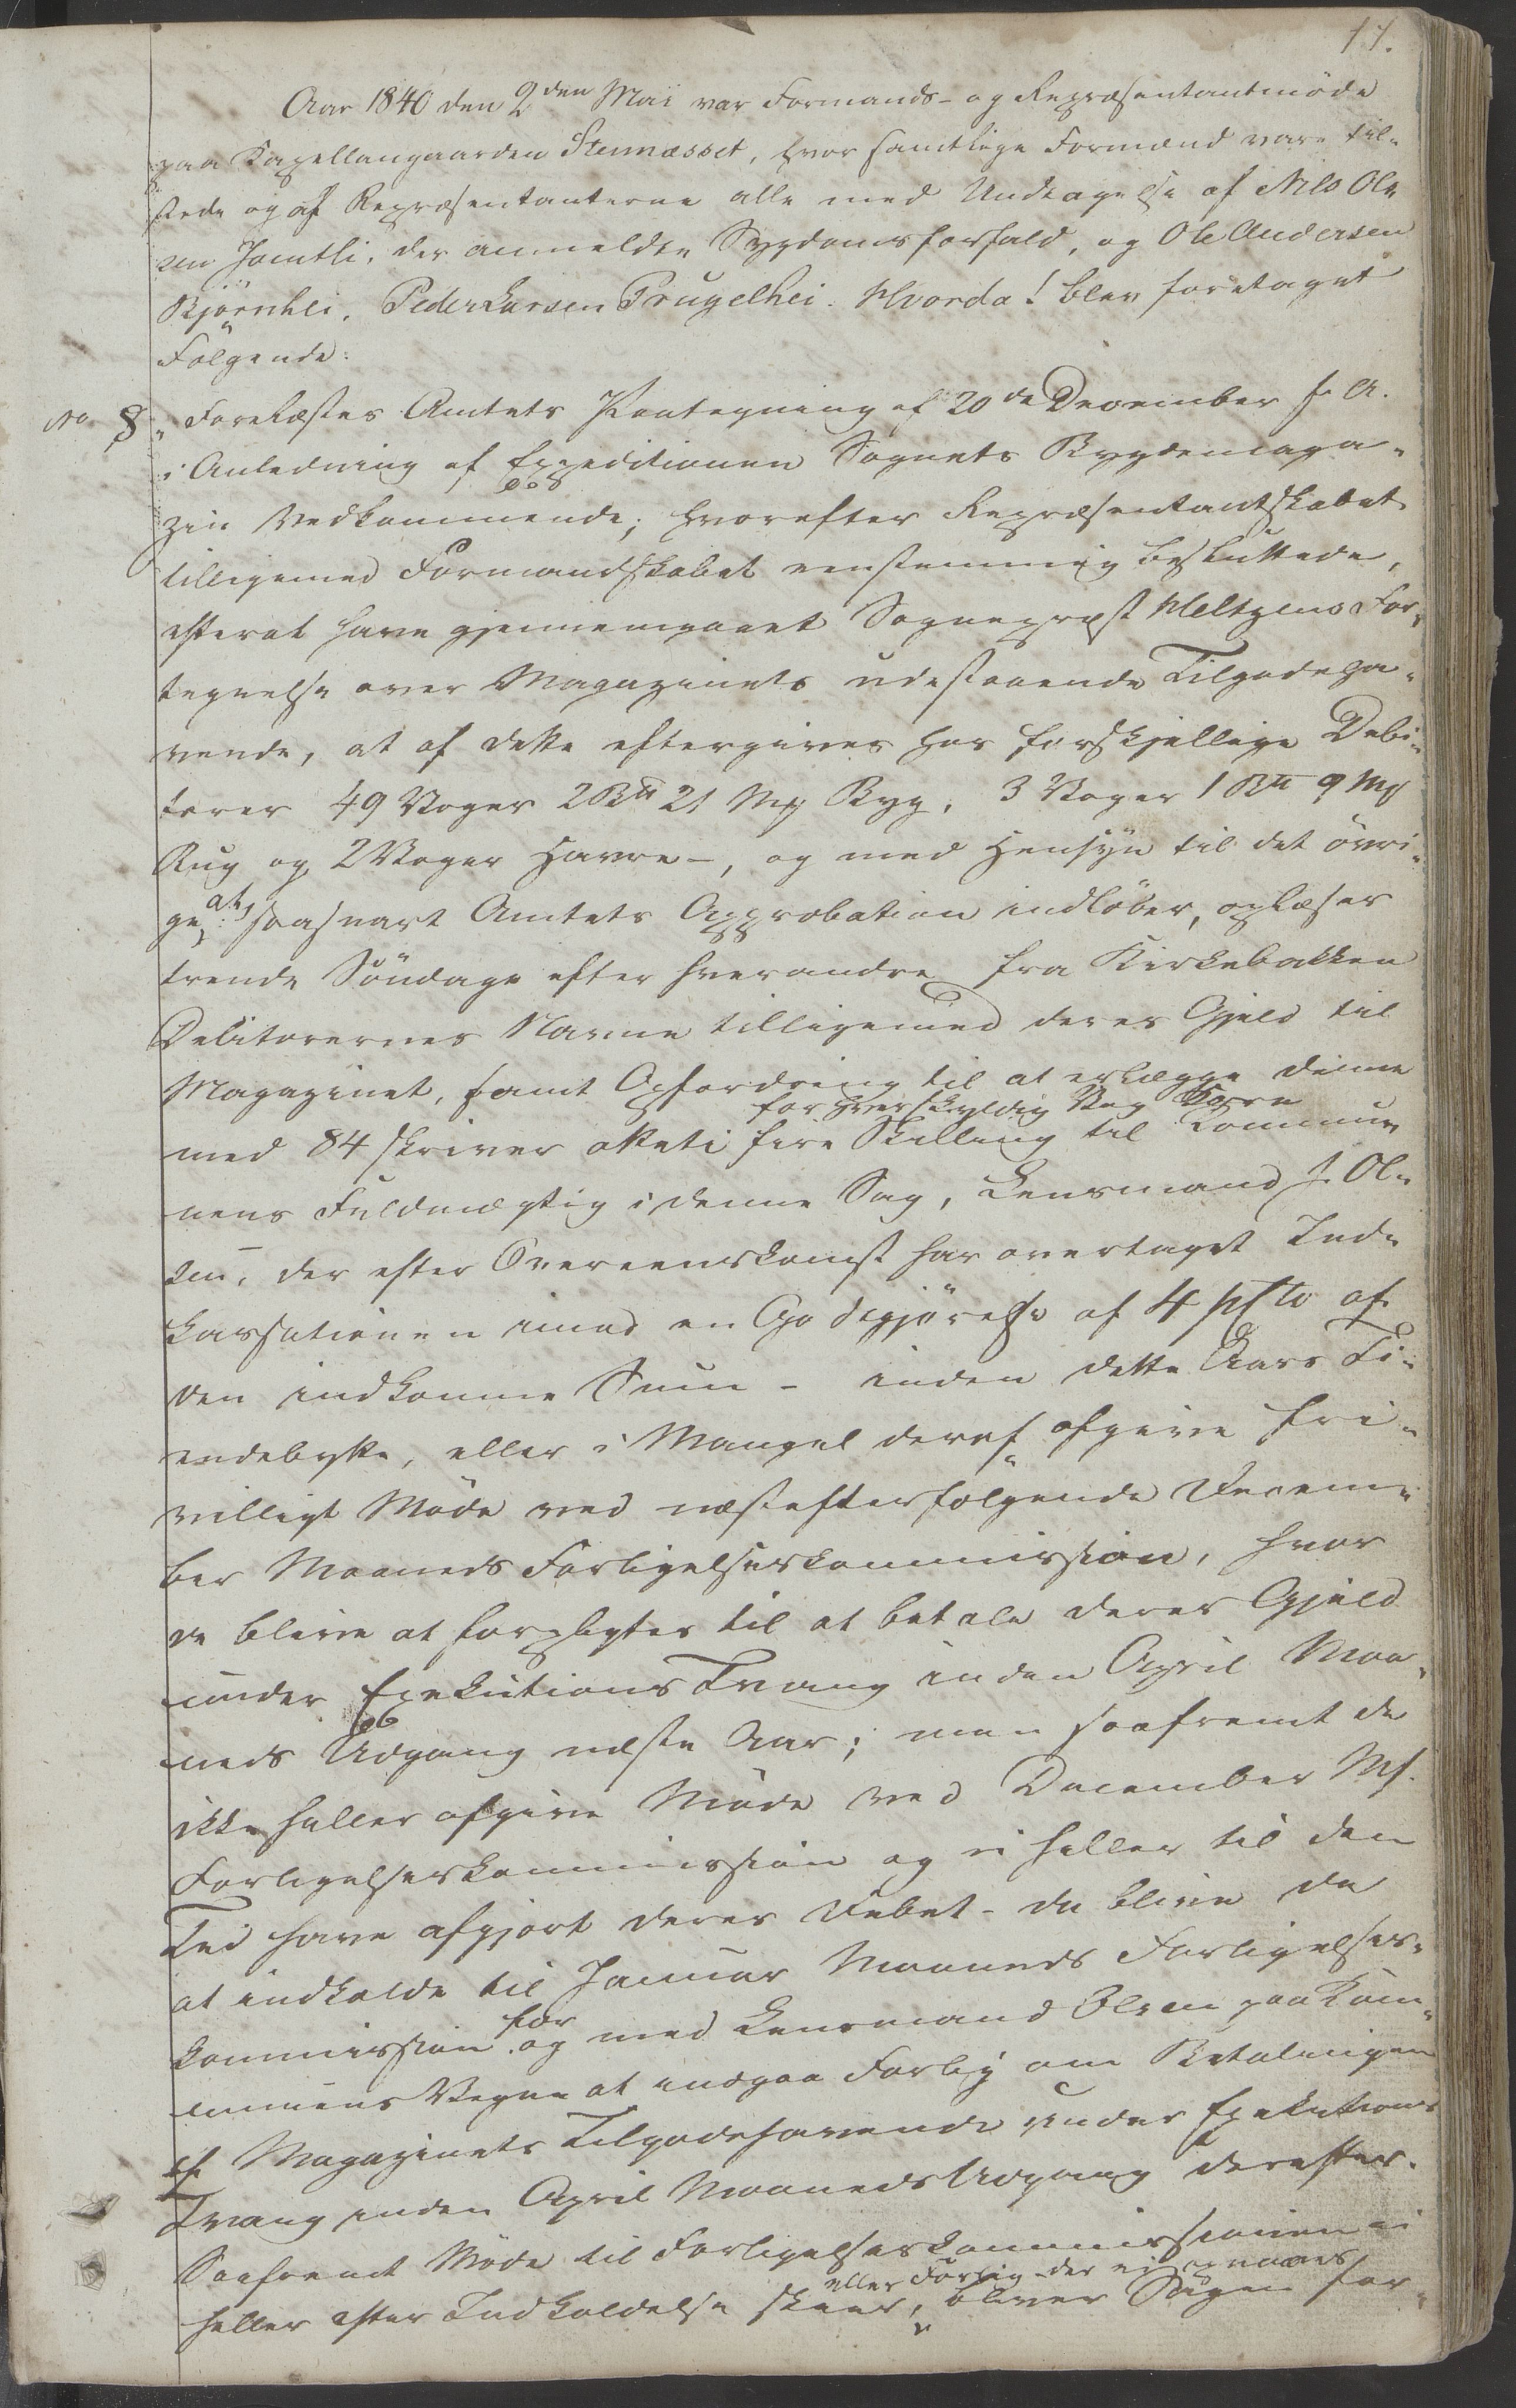 11.
Aar 1840 den 2den Mai var Formands- og Repræsentantmöde
paa Kapellangaarden Stennæsset, hvor samtlige Formænd vare til-
stede og af Repræsentanterne alle med Undtagelse af Nils Ol-
sen Jamtli, der anmeldte Sygdomsforfald, og Ole Andersen
Björnhei, Peder Larsen Trugelhei. Hvorda! blev foretaget
Fölgende:
No 8, Forelæstes Amtets Paategning af 20de December f. A.
i Anledning af Expeditionen Sognets Bygdemaga-
zin Vedkommende; hvorefter Repræsentantskabet
tilligemed Formandskabet eenstemmig besluttede,
efterat have gjennemgaaet Sognepræst Heltzens For-
tegnelse over Magazinets udestaaende Tilgodeha-
vende, at af dette eftergives hos forskjellige Debi-
torer 49 Voger 2 B℔ 21 Mk Byg, 3 Voger 1 B℔ 9 Mk
Rug og 2 Voger Havre -, og med Hensyn til det övri-
ge, at, saasnart Amtets Approbation indlöber, oplæses
trende Söndage efter hverandre fra Kirkebakken
Debitorernes Navne tilligemed deres Gjeld til
Magazinet, samt Opfordring til at erlægge denne
for hver skyldig Vog Korn
med 84 skriver otteti fire Skilling til Kommu-
nens Fuldmægtig i denne Sag, Lensmand J. Ol-
sen, der efter Overeenskomst har overtaget Ind-
kassationen imod en Godtgjörelse af 4 pCto af
den indkomne Sum - inden dette Aars Ti-
endebytte, eller i Mangel deraf afgive fri-
villigt Möde ved næstefterfölgende Decem-
ber Maaneds Forligelseskommission, hvor
de blive at forpligtes til at betale deres Gjeld
under Exekutions Tvang inden April Maa-
neds Udgang næste Aar; men saafremt de
ikke heller afgive Möde ved December Md.
Forligelseskommission og ei heller til den
Tid have afgjort deres Debet - da blive de
at indkalde til Januar Maaneds Forligelses-
kommission for og med Lensmand Olsen paa Kom-
munens Vegne at indgaa Forlig om Betalingen
af Magazinets Tilgodehavende under Exekutions
Tvang inden April Maaneds Udgang derefter.
Saafremt Möde til Forligelseskommissionen ei
eller Forlig der ei opnaaes
heller efter Indkaldelse skeer, bliver Sagen for-